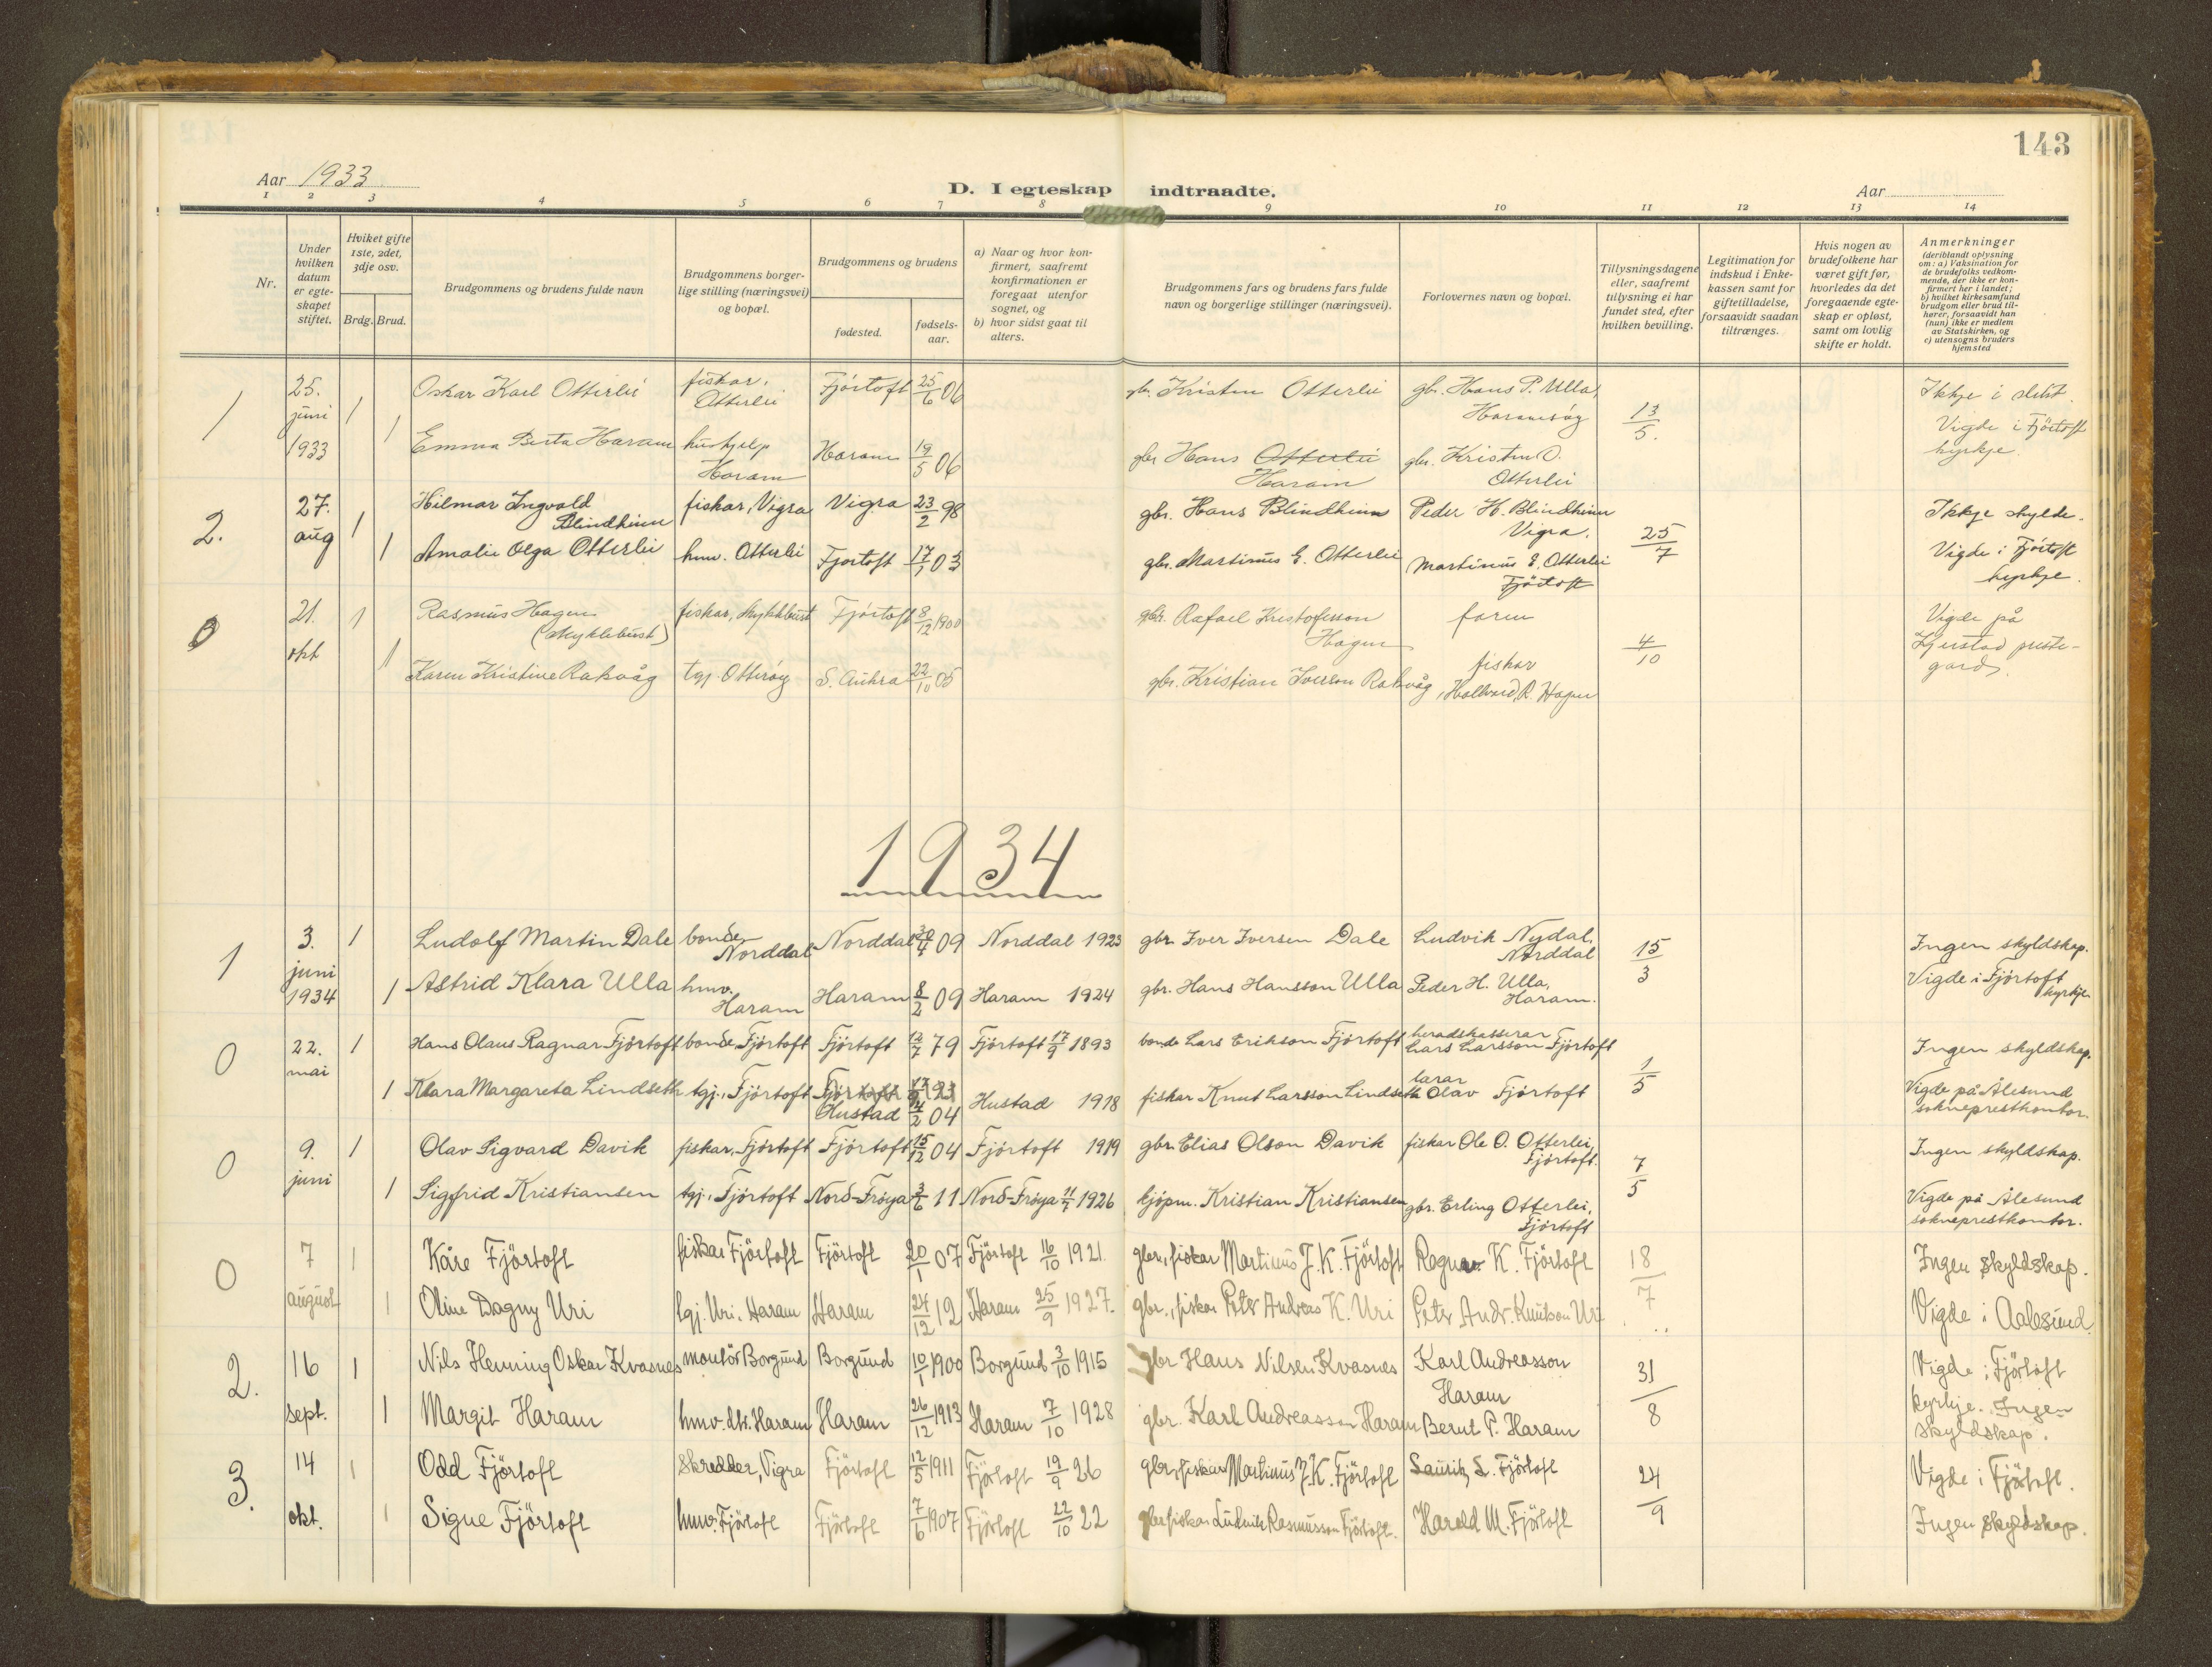 143
Aar 1933
D. I egteskap indtraadte.
Aar
1 2 3 4 5 6 7 8 9 10 11 12 13 14
Nr.
Under hvilken datum er egteskapet stiftet.
Hviket gifte 1ste, 2det, 3dje osv.
Brdg. Brud.
Brudgommens og brudens fulde navn
Brudgommens borgerlige stilling (næringsvei) og bopæl.
Brudgommens og brudens
fødested.
fødselsaar.
a) Naar og hvor konfirmert, saafremt konfirmationen er foregaat utenfor sognet, og
b) hvor sidst gaat til alters.
Brudgommens fars og brudens fars fulde navn og borgerlige stillinger (næringsvei).
Forlovernes navn og bopæl.
Tillysningsdagene eller, saafremt tillysning ei har fundet sted, efter hvilken bevilling.
Legitimation for indskud i Enkekassen samt for giftetilladelse, forsaavidt saadan tiltrænges.
Hvis nogen av brudefolkene har været gift før, hvorledes da det foregaaende egteskap er opløst, samt om lovlig skifte er holdt.
Anmerkninger (deriblandt oplysning om: a) Vaksination for de brudefolks vedkommende, der ikke er konfirmert her i landet; b) hvilket kirkesamfund brudgom eller brud tilhører, forsaavidt han (hun) ikke er medlem av Statskirken, og c) utensogns bruders hjemsted
1 25. juni 1933 1 Oskar Karl Otterlei fiskar, Otterlei Fjörtoft 25/6 06 gbr. Kristen Otterlei gbr. Hans P. Ulla, Haramsöy 13/5. Ikkje i slekt. Vigde i Fjörtoft kyrkje.
1 Emma Berta Haram hushjelp Haram Haram 19/5 06 gbr Hans Otterlei Haram gbr. Kristen O. Otterlei
2. 27. aug 1 Hilmar Ingvald Blindheim fiskar, Vigra Vigra 23/2 98 gbr. Hans Blindheim Peder H. Blindheim Vigra. 25/7 Ikkje skylde. Vigde i Fjörtoft kyrkje.
1 Amalie Olga Otterlei hmv. Otterlei Fjörtoft 17/1 03 gbr. Martinus E. Otterlei Martinus E. Otterlei Fjörtoft
0 21. okt 1 Rasmus Hagen (Myklebust) fiskar, Myklebust Fjörtoft 8/12 1900 gbr. Rafael Kristofersson Hagen faren 4/10 Vigde på prestegard.
1 Karen Kristine Rakvåg tgj. Otteröy S. Aukra 22/10 05 gbr. Kristian Iverson Rakvåg fiskar Hallvard R. Hagen
1934
1 3. juni 1934 1 Ludolf Martin Dale bonde, Norddal Norddal 30/4 09 Norddal 1923 gbr. Iver Iversen Dale Ludvik Nydal, Norddal 15/3 Ingen skyldskap. Vigde i Fjörtoft kyrkje
1 Astrid Klara Ulla hmv. Haram Haram 8/2 09 Haram 1924 gbr. Hans Hansson Ulla Peder H. Ulla, Haram.
0 22. mai 1 Hans Olaus Ragnar Fjörtoft bonde, Fjörtoft Fjörtoft 12/7 79 Fjörtoft 17/9 1893 bonde Lars Erikson Fjörtoft heradskasserar Lars Larsson Fjörtoft 1/5 Ingen skyldskap. Vigde på Ålesund sokneprestkontor.
1 Klara Margareta Lindseth tgj., Fjörtoft Fjörtoft Hustad 4/2 04 Hustad 1918 fiskar Knut Larsson Lindseth lærar Olav Fjörtoft
0 9. juni 1 Olav Sigvard Davik fiskar, Fjörtoft Fjörtoft 15/12 04 Fjörtoft 1919 gbr. Elias Olson Davik fiskar Ole O. Otterlei, Fjörtoft. 7/5 Ingen skyldskap. Vigde på Ålesund sokneprestkontor.
1 Sigfrid Kristiansen tgj., Fjörtoft Nord-Fröya 3/6 11 Nord-Fröya 11/7 1926 kjöpm. Kristian Kristiansen gbr. Erling Otterlei, Fjörtoft
0 7 august 1 Kåre Fjörtoft fiskar Fjörtoft Fjörtoft 20/1 07 Fjörtoft 16/10 1921. gbr., fiskar Martinus J. K. Fjörtoft Ragnar K. Fjörtoft 18/7 Ingen skyldskap. Vigde i Aalesund.
1 Oline Dagny Uri tgj. Uri, Haram Haram 24/12 12 Haram 25/9 1927. gbr., fiskar Peter Andreas K. Uri Peter Andr. Knutson Uri
2. 16 sept. 1 Nils Henning Oskar Kvasnes montör Borgund Borgund 10/1 1900 Borgund 3/10 1915 gbr Hans Nilsen Kvasnes Karl Andreasson Haram 31/8 Vigde i Fjörtoft kyrkje. Ingen skyldskap.
1 Margit Haram hmv. dtr. Haram Haram 26/12 1913 Haram 7/10 1928 gbr. Karl Andreasson Haram Bernt P. Haram
3. 14 okt. 1 Odd Fjörtoft Skredder, Vigra Fjörtoft 12/5 1911 Fjörtoft 19/9 26 gbr, fiskar Martinus J. K. Fjörtoft Lauritz L. Fjörtoft 24/9 Vigde i Fjörtoft. Ingen skyldskap.
1 Signe Fjörtoft hmv. Fjörtoft Fjörtoft 7/6 1907 Fjörtoft 22/10 22 gbr fiskar Ludvik Rasmusson Fjörtoft. Harald M. Fjörtoft